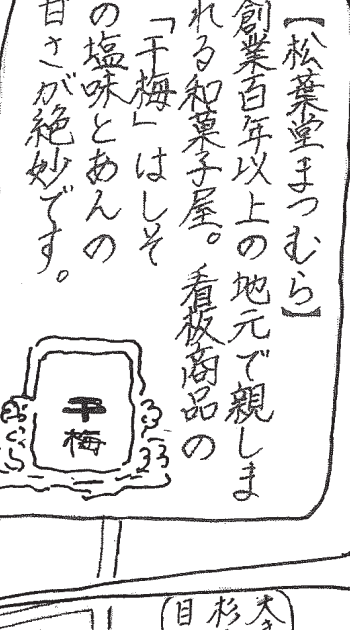 【松葉堂まつむら】
創業百年以上の地元で親しま
れる和菓子屋。看板商品の
「干梅」はしそ
の塩味とあんの
甘さが絶妙です。
干
梅
大き
杉
目